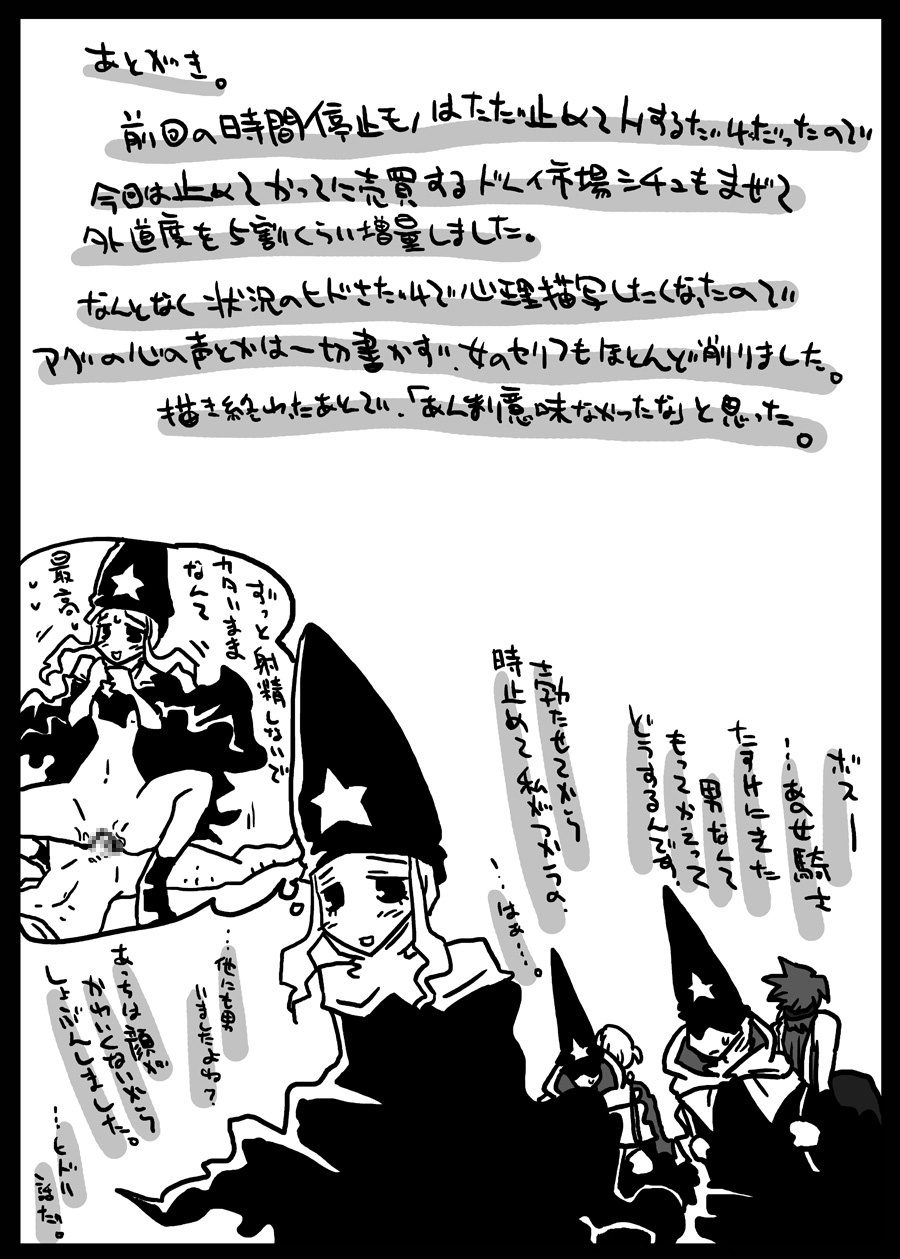 あとがき。
前回の時間停止モノはただ止めてHするだけだったので
今回は止めてかってに売買するドレイ市場シチュもまぜて
外道度を5割くらい増量しました。
なんとなく状況のヒドさだけで心理描写したくなったので
アヘ゛の心の声とかは一切書かず、女のセリフもほとんど削りました。
描き終わったあとで、「あんま意味なかったな」と思った。
ボスー
…あの女騎士
たすけにきた
男なんて
もってかえって
どうするんです。
さ勃たせてから
時止めて私がつかうの。
…はぁ…。
ずっと射精しないで
カタいまま
なんて
最高
…他にも男
いましたよね?
あっちは顔が
かわいくないから
しょぶんしました。
…ヒドい
話だ。